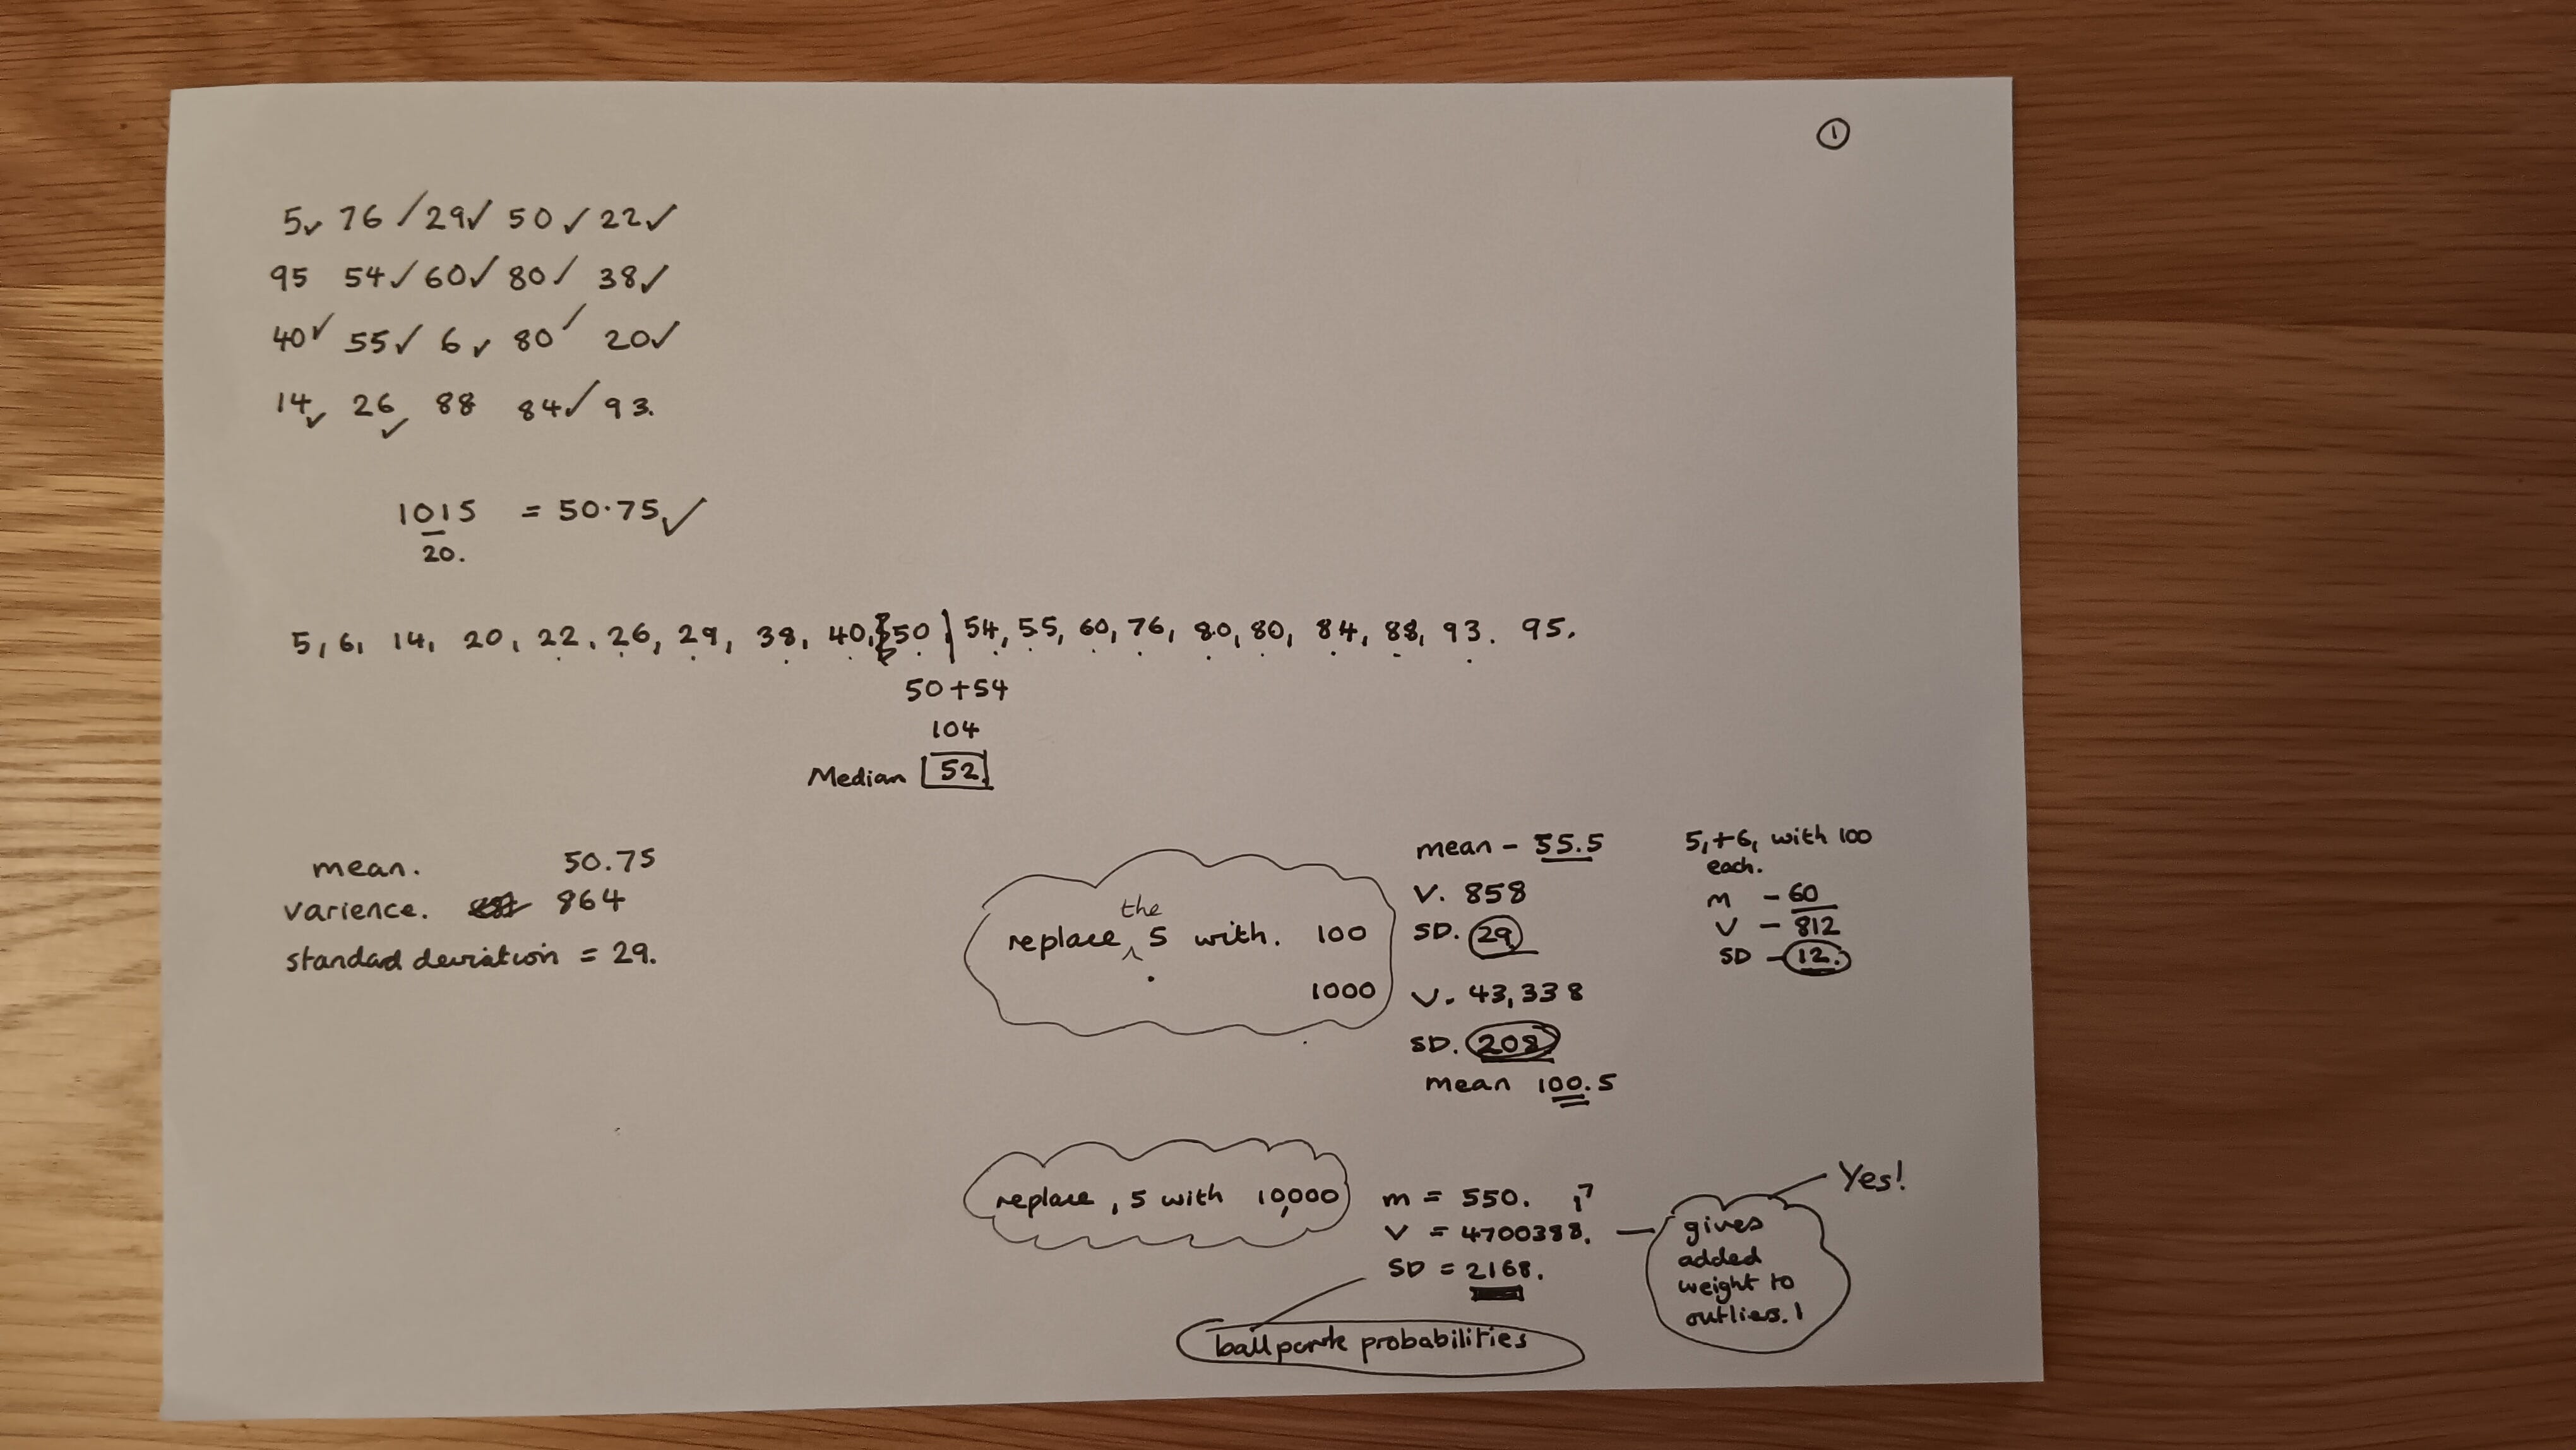 1
5 ✓ 76 / 29 ✓ 50 ✓ 22 ✓
95 54 ✓ 60 ✓ 80 / 38 ✓
40 ✓ 55 ✓ 6 ✓ 80 / 20 ✓
14 ✓ 26 ✓ 88 84 ✓ 93.
1015 = 50.75 ✓
20.
5, 6, 14, 20, 22, 26, 29, 38, 40, 50 | 54, 55, 60, 76, 80, 80, 84, 88, 93. 95.
50+54
104
Median 52
mean. 50.75
varience. 864
standad deviation = 29.
the
replace 5 with. 100
1000
mean - 55.5
V. 858
SD. 29
V. 43,338
SD. 208
mean 100.5
5, + 6, with 100
each.
m - 60
V - 812
SD - 12.
replace, 5 with 10,000
m = 550.
V = 4700388.
SD = 2168.
ballpark probabilities
gives
added
weight to
outliers. !
Yes!